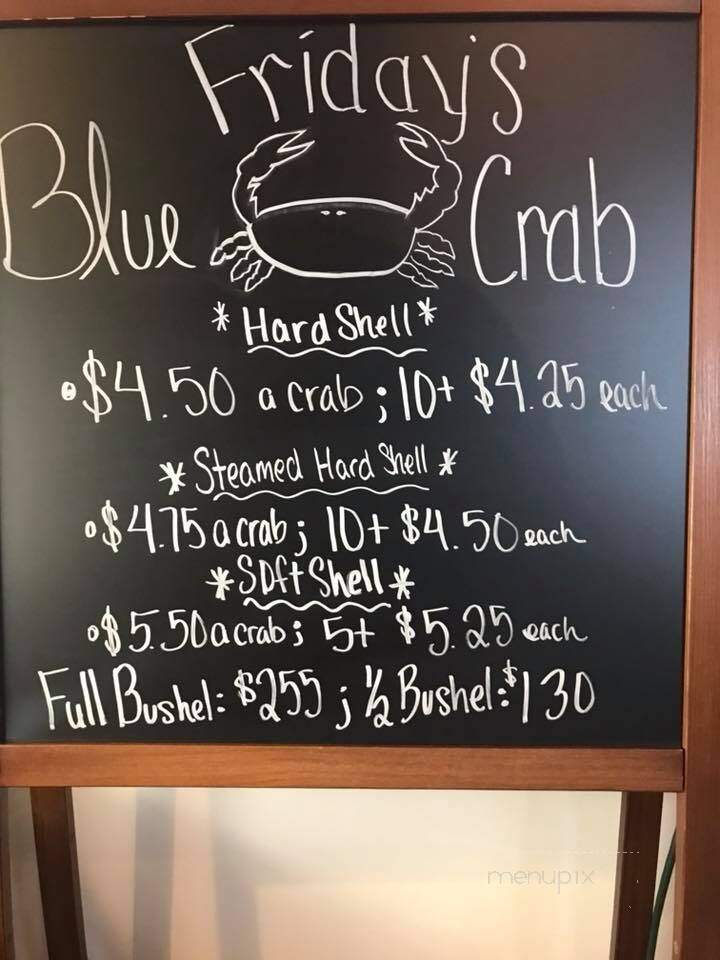 Friday's
Blue Crab
*Hard Shell*
•$4.50 a crab; 10+ $4.25 each
*Steamed Hard Shell*
•$4.75 a crab; 10+ $4.50 each
*Soft Shell*
•$5.50 a crab; 5+ $5.25 each
Full Bushel: $255; ½ Bushel: $130
menupix